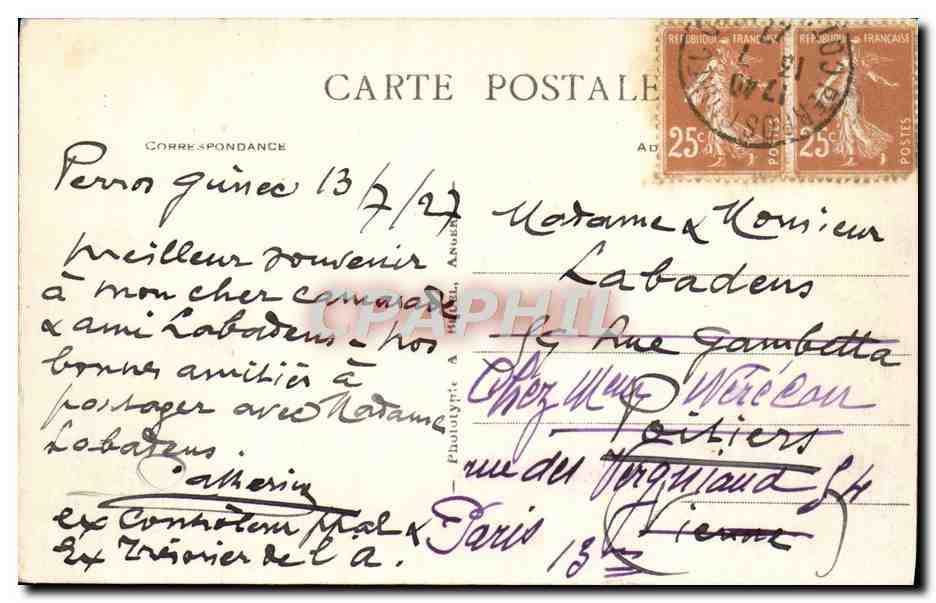 CARTE POSTALE
CORRESPONDANCE
AD
REPUBLIQUE FRANÇAISE
25c
POSTES
REPUBLIQUE FRANÇAISE
25c
POSTES
17 40
13
7
Perros Guirec 13/7/27
Meilleur souvenir
à mon cher camarade
& ami Labadens - nos
bonnes amitiés à
partager avec Madame
Labadens
ex Contrôleur &
Ex Trésorier de l'A.
Phototypie A. BRUEL, ANGERS
Madame & Monsieur
Labadens
rue Gambetta
Chez
Poitiers
rue des Vergniaud 54
(Vienne)
Paris
13
CPAPHIL